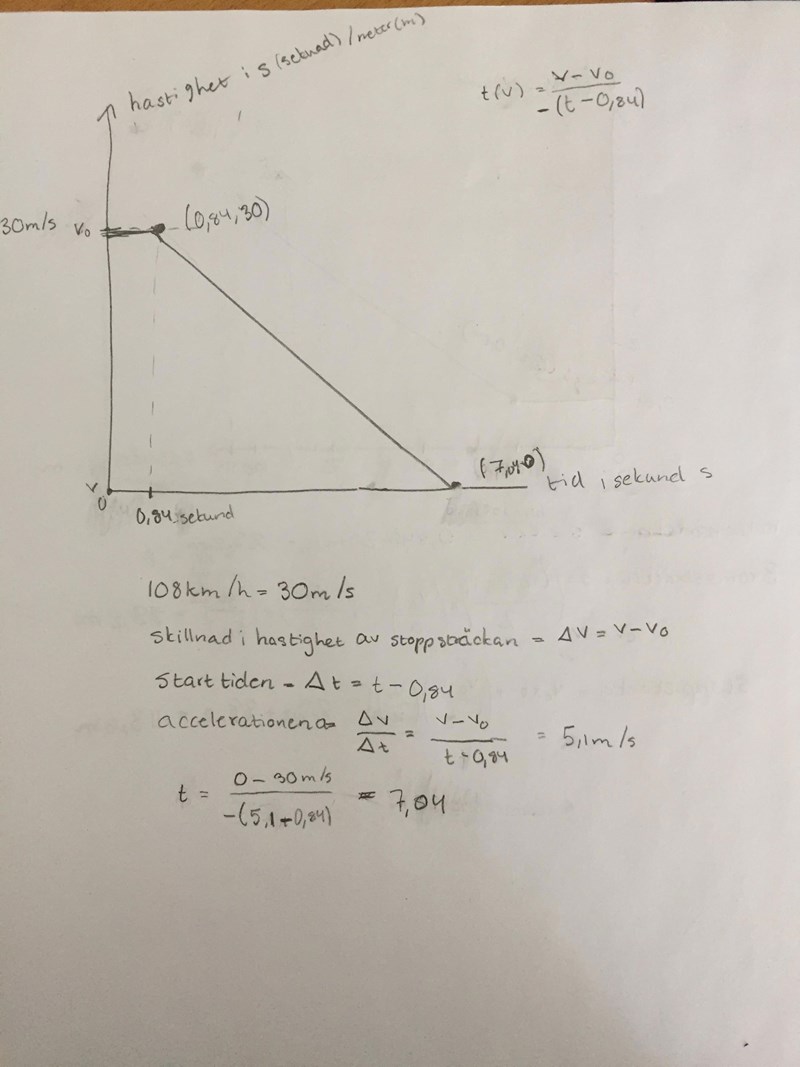 hastighet i s (sekunad) / meter (m)
t(v) = v - v₀ / -(t - 0,84)
30m/s v₀ (0,84,30)
(7,04,0)
v
0
tid i sekund s
0,84 sekund
108km/h = 30m/s
skillnad i hastighet av stoppsträckan = Δv = v - v₀
Start tiden - Δt = t - 0,84
accelerationen a = Δv / Δt = v - v₀ / t - 0,84 = 5,1m/s
t = 0 - 30m/s / -(5,1+0,84) = 7,04